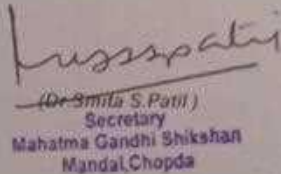 (Dr Smita S.Patil )
Secretary
Mahatma Gandhi Shikshan
Mandal,Chopda